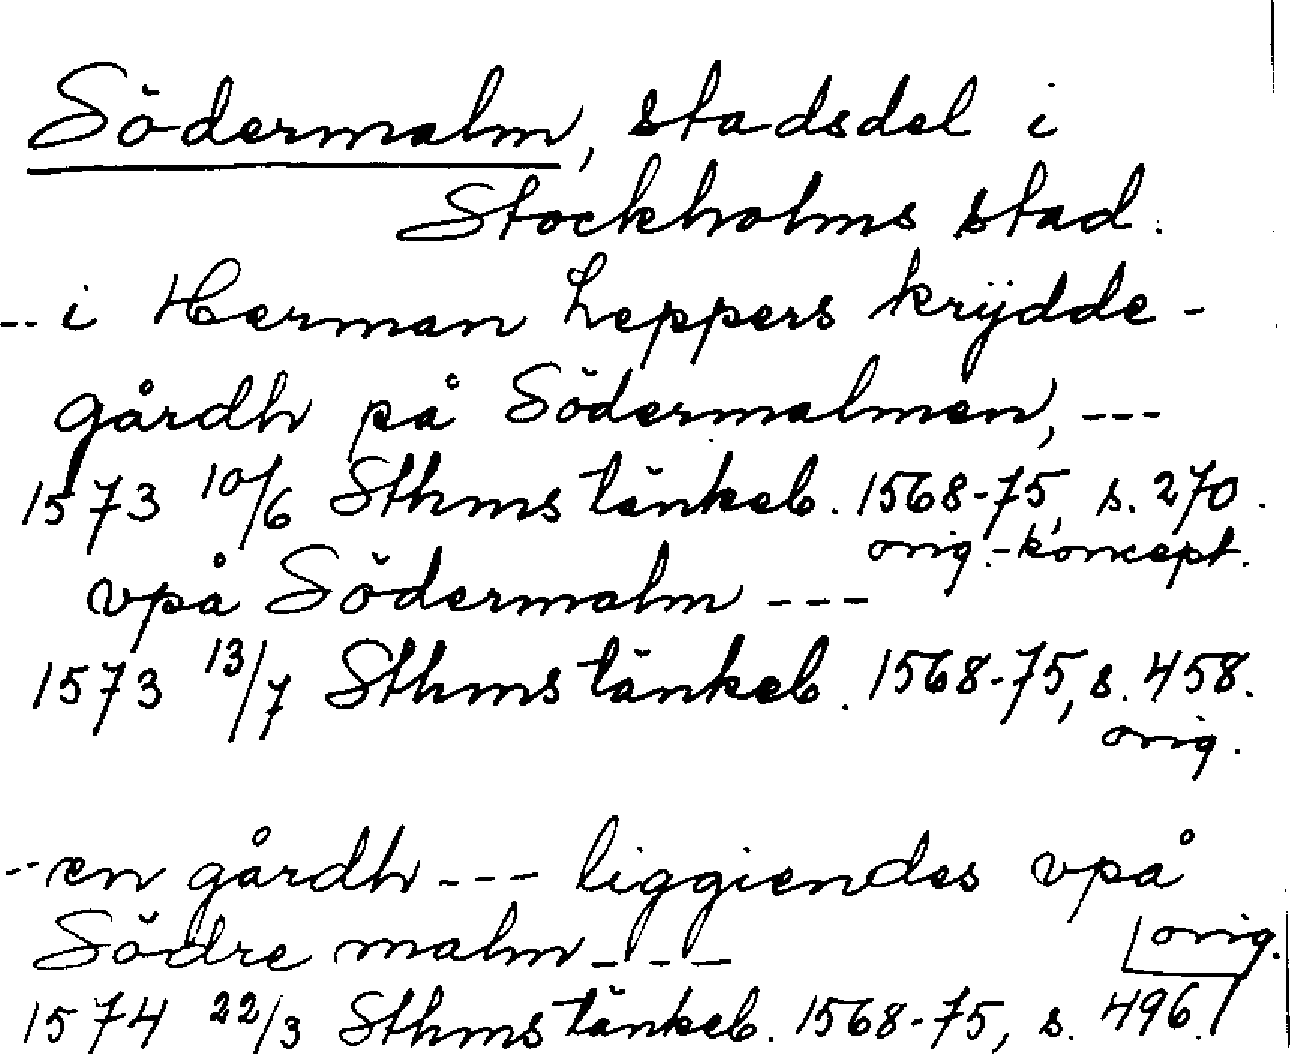 Södermalm, stadsdel i
Stockholms stad.
-- i Herman Leppers krÿdde-
gårdh på Södermalmen, ---
1573 10/6 Sthms tänkeb. 1568-75, s. 270.
orig.-koncept.
vpå Södermalm ---
1573 13/7 Sthms tänkeb. 1568-75, s. 458.
orig.
-- en gårdh --- liggiendes vpå
Södre malm ---
orig.
1574 22/3 Sthms tänkeb. 1568-75, s. 496.